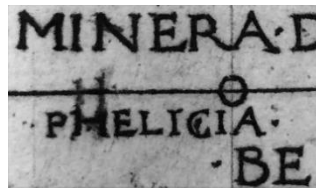 MINERA·D
H
PHELICIA·
·BE